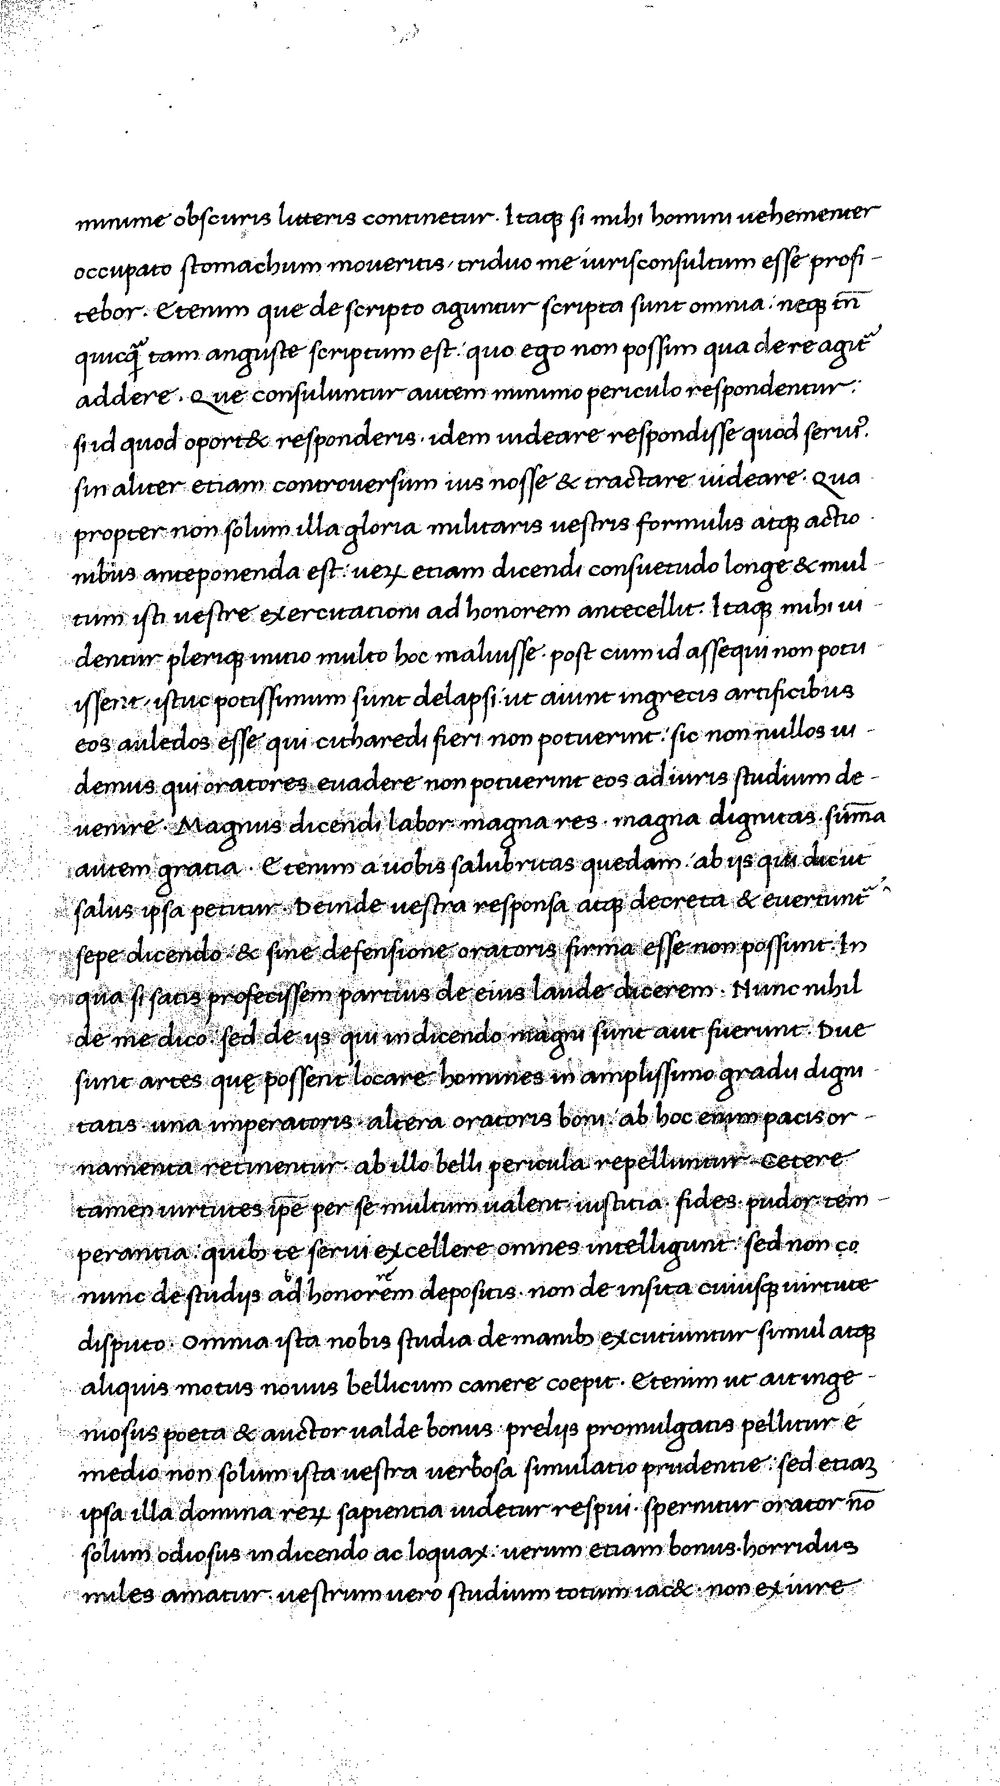 minime obscuris litteris continetur. Itaqꝫ si mihi homini uehementer
occupato stomachum moueritis, triduo me iurisconsultum esse profi-
tebor. Etenim que de scripto aguntur scripta sunt omnia: neqꝫ tn̄
quicq̄ tam anguste scriptum est: quo ego non possim qua de re agit᷑
addere. Que consuluntur autem minimo periculo respondentur:
si id quod oport& responderis. idem uideare respondisse quod serui᷒.
sin aliter etiam controuersum ius nosse & tractare uideare. Qua
propter non solum illa gloria militaris uestris formulis atqꝫ actio
nibus anteponenda est: ueꝝ etiam dicendi consuetudo longe & mul-
tum isti uestre exercitationi ad honorem antecellit. Itaqꝫ mihi ui-
dentur pleriqꝫ initio multo hoc maluisse. post cum id assequi non potu-
issent, istuc potissimum sunt delapsi: ut aiunt in grecis artificibus
eos auledos esse qui citharedi fieri non potuerint: sic non nullos ui-
demus qui oratores euadere non potuerint eos ad iuris studium de-
uenire. Magnus dicendi labor. magna res. magna dignitas. sum̄a
autem gratia. Etenim a uobis salubritas quedam: ab ijs qui dicūt
salus ipsa petitur. Deinde uestra responsa atqꝫ decreta & euertunt᷑
sepe dicendo. & sine defensione oratoris firma esse non possunt. In
qua si satis profecissem partius de eius laude dicerem. Nunc nihil
de me dico. sed de ijs qui in dicendo magni sunt aut fuerunt. Due
sunt artes quę possent locare homines in amplissimo gradu digni
tatis. una imperatoris. altera oratoris boni: ab hoc enim pacis or-
namenta retinentur. ab illo belli pericula repelluntur. Cetere
tamen uirtutes ip̄e per se multum ualent. iustitia. fides. pudor. tem-
perantia: quibꝫ te serui excellere omnes intelligunt: sed non co
nunc de studijs ad honorem depositis. non de insita cuiusqꝫ uirtute
disputo. Omnia ista nobis studia de manibꝫ excutiuntur simul atqꝫ
aliquis motus nouus bellicum canere coepit. Etenim ut ait inge-
niosus poeta & auctor ualde bonus prelijs promulgatis pellitur é
medio non solum ista uestra uerbosa simulatio prudentie: sed etiaꝫ
ipsa illa domina reꝝ sapientia uidetur respui. spernitur orator nō
solum odiosus in dicendo ac loquax: uerum etiam bonus. horridus
miles amatur. uestrum uero studium totum iac&. non ex iure